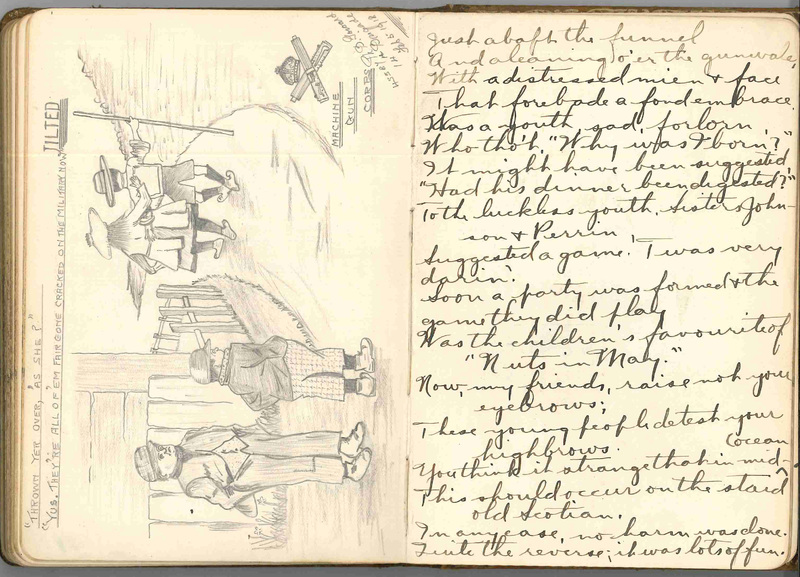 JILTED
"THROWN YER OVER, 'AS SHE?"
"YUS, THEY'RE ALL OF 'EM FAIR GONE CRACKED ON THE MILITARY NOW."
MACHINE
GUN
CORPS
Feb 5 1918
Just abaft the funnel
And a leaning o'er the gunwale,
With a distressed mien & face
That forebade a fond embrace.
Was a youth, sad, forlorn,
Who tho't, "Why was I born?"
It might have been suggested,
"Had his dinner been digested?"
To the luckless youth, Sisters John-
son & Perrin
Suggested a game. T'was very
darin'.
Soon a party was formed & the
game they did play
Was the children's favourite of
"Nuts in May."
Now, my friends, raise not your
eyebrows;
These young people detest your
highbrows.
You think it strange that in mid-(ocean
This should occur on the staid
old Scotian.
In any case, no harm was done.
Quite the reverse; it was lots of fun.